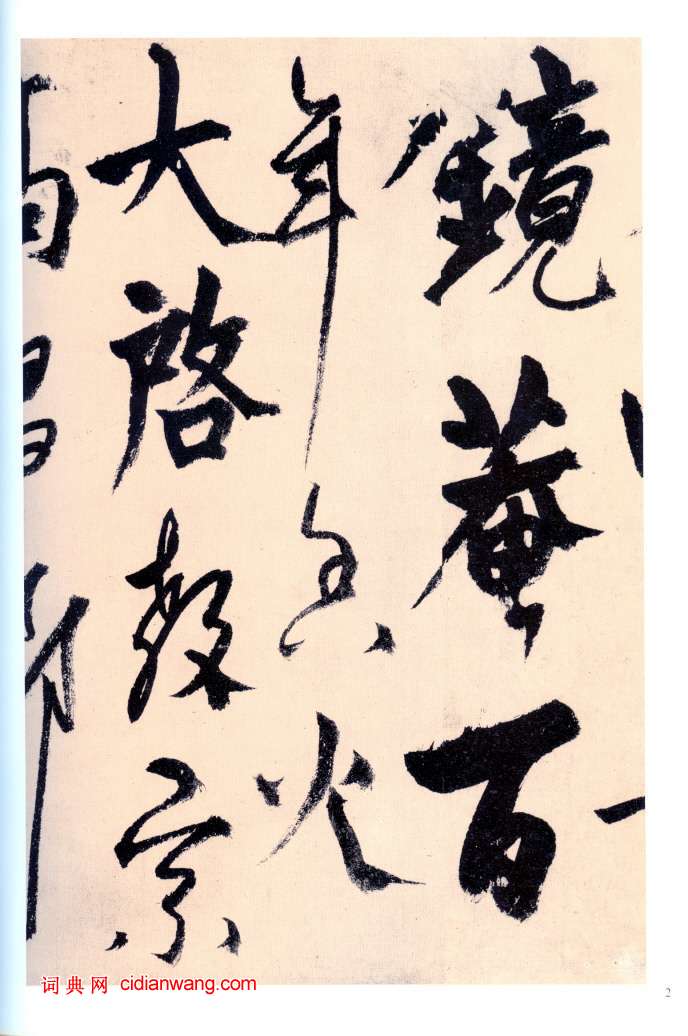 鏡菴百
年 火
大啓教宗
词典网 cidianwang.com
2